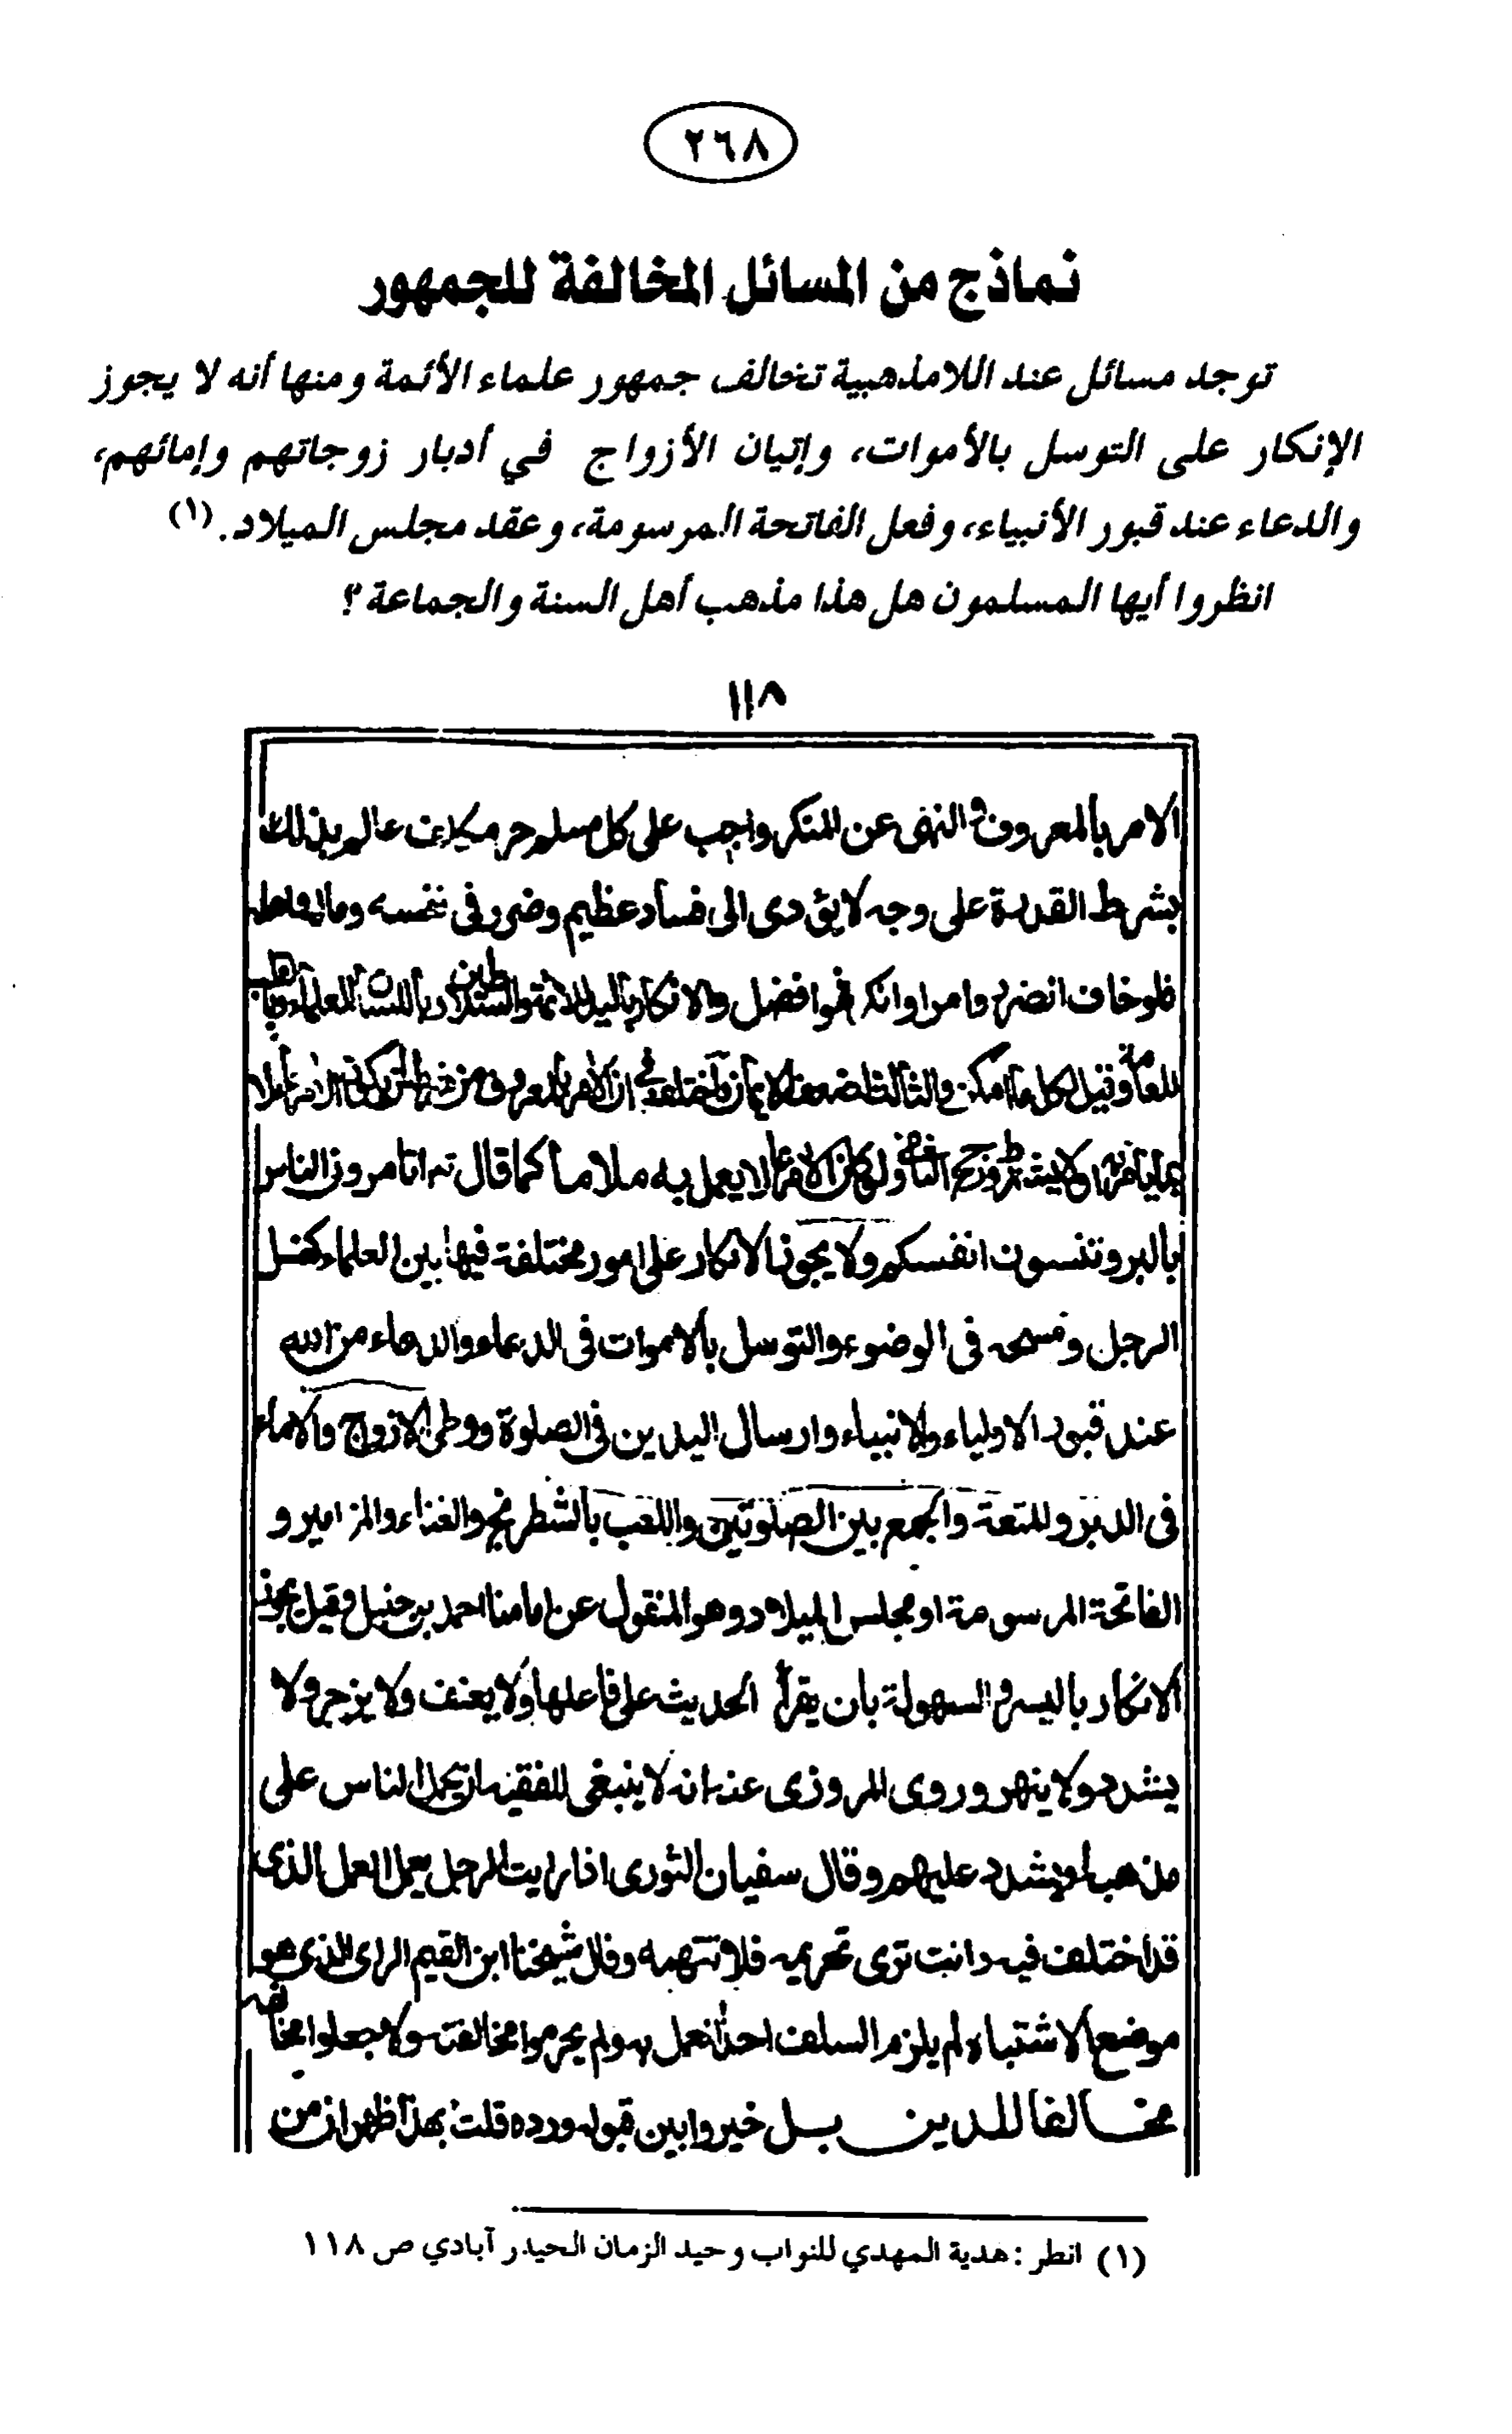 ٢٦٨
نماذج من المسائل المخالفة للجمهور
توجد مسائل عند اللامذهبية تخالف جمهور علماء الأئمة ومنها أنه لا يجوز
الإنكار على التوسل بالأموات، وإتيان الأزواج في أدبار زوجاتهم وإمائهم،
والدعاء عند قبور الأنبياء، وفعل الفاتحة المرسومة، وعقد مجلس الميلاد. (١)
انظروا أيها المسلمون هل هذا مذهب أهل السنة والجماعة؟
١١٨
الامر بالمعروف والنهى عن المنكر واجب على كل مسلم حر مكلف عالم بذلك
بشرط القدرة على وجه لا يؤدى الى فساد عظيم وضرر فى نفسه وماله واهله
فلو خاف الضرر وامر او انكر فهو افضل والانكار باليد للائمة والسلاطين وباللسان للعلماء
للعامة وقيل لكل ما امكن والثالث اضعف الايمان واختلف فى ان الامر بالمعروف
ولا يشترط ولكن الامر بما لا يعمل به ملام كما قال تعا اتامرون الناس
بالبر وتنسون انفسكم ولا يجوز الانكار على امور مختلفة فيها بين العلماء كغسل
الرجل ومسحه فى الوضوء والتوسل بالاموات فى الدعاء والدعاء من الله
عند قبور الاولياء والانبياء وارسال اليدين فى الصلوة ووطى الازواج والاماء
فى الدبر والمتعة والجمع بين الصلوتين واللعب بالشطرنج والغناء والمزامير و
الفاتحة المرسومة او مجلس الميلاد وهو المنقول عن امامنا احمد بن حنبل وقيل يجوز
الانكار باليسر والسهولة بان يقرأ الحديث على فاعلها ولا يعنف ولا يزجر ولا
يشدد ولا ينهر وروى المروزى عنه انه لا ينبغى للفقيه ان يحمل الناس على
مذهبه او يشدد عليهم وقال سفيان الثورى اذا رايت الرجل يعمل العمل الذى
قد اختلف فيه وانت ترى تحريمه فلا تنهه وقال شيخنا ابن القيم الراى الذى هو
موضع الاشتباه لم يلزم السلف احدا العمل به ولم يحرموا مخالفته ولا جعلوا مخالفه
مخالفا للدين بل خيروا بين قبوله ورده قلت بهذا ظهر ان من
(١) انظر : هدية المهدي للنواب وحيد الزمان الحيدر آبادي ص ١١٨